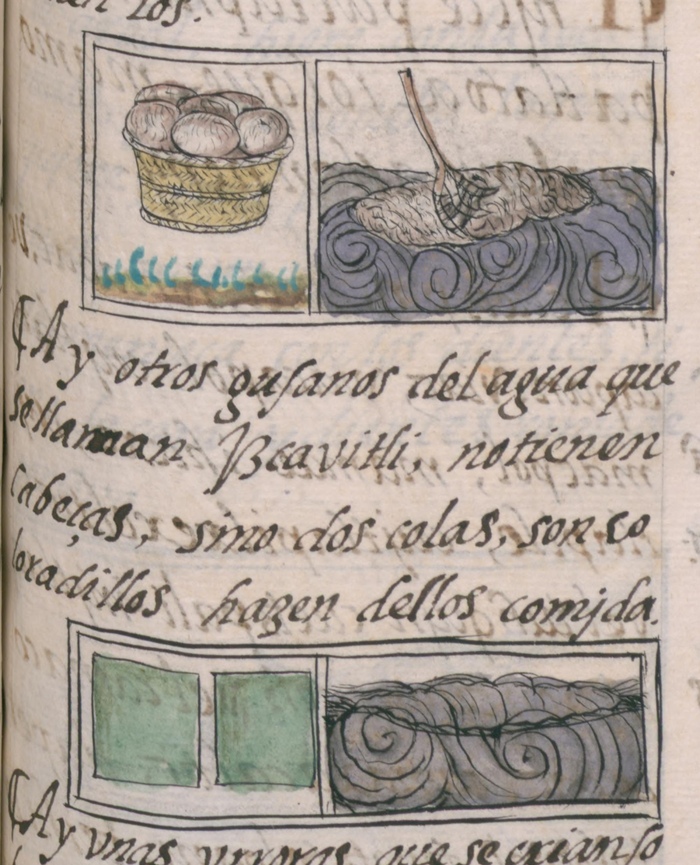 los.
¶ Ay otros gusanos del agua que
se llaman Yzcavitli, no tienen
cabeças, sino dos colas, son co
loradillos hazen dellos comjda.
¶ Ay vnas vrroras que se crian so